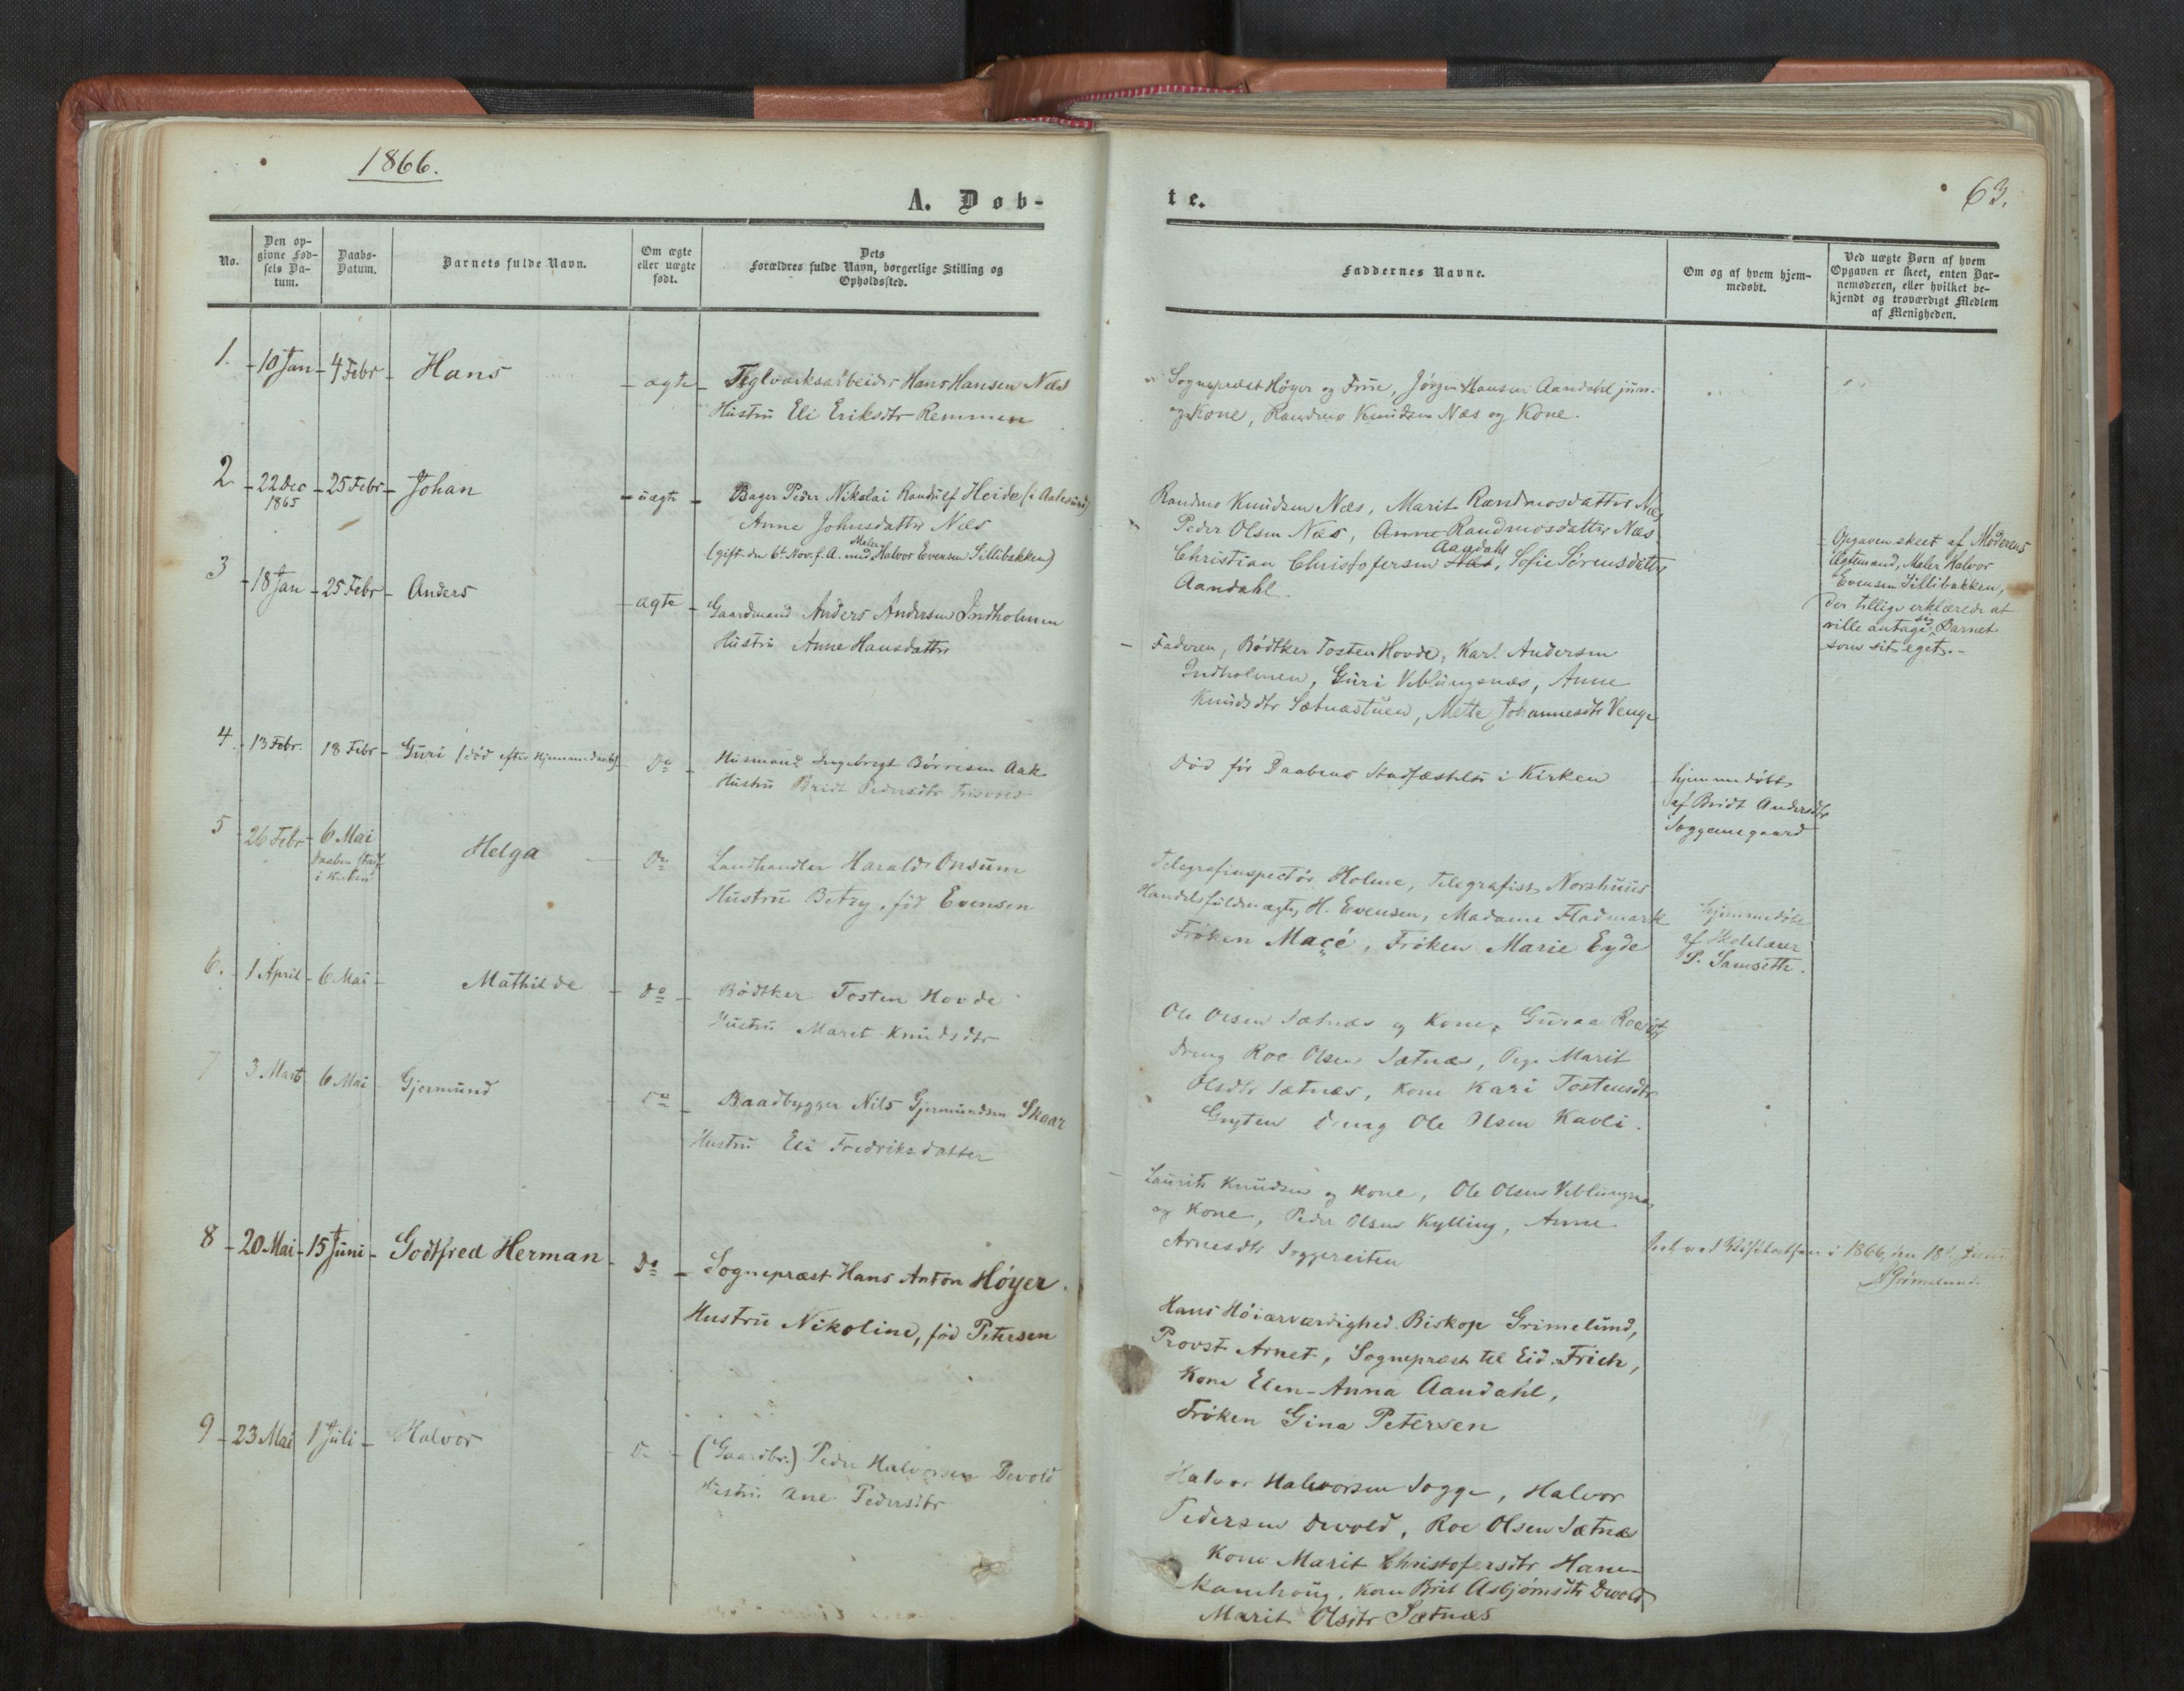 1866.
63.
A. Døb-
te.
No.
Den op-
givne Fød-
sels Da-
tum.
Daabs-
Datum.
Barnets fulde Navn.
Om ægte
eller uægte
født.
Dets
Forældres fulde Navn, borgerlige Stilling og
Opholdssted.
Faddernes Navne.
Om og af hvem hjem-
medøbt.
Ved uægte Børn af hvem
Opgaven er skeet, enten Bar-
nemoderen, eller hvilket be-
kjendt og troværdigt Medlem
af Menigheden.
1. 10 Jan 4 Febr Hans ægte Teglværksarbeider Hans Hansen Næs
Hustru Eli Eriksdtr Remmen
Sognepræst Høyer og Frue, Jørgen Hansen Aandahl jun.
og Kone, Randmo Knudsen Næs og Kone.
2 22 Dec 25 Febr Johan uægte Bager Peder Nikolai Randulf Heide (i Aalesund)
1865
Anne Johnsdatter Næs
(gift den 6t Nov. f. A. med Maler Halvor Evensen Sillibakken)
Randmo Knudsen Næs, Marit Randmosdatter Næs
Peder Olsen Næs, Anne Randmosdatter Næs
Christian Christofersen Næs Aandahl, Sofie Sørensdatter
Aandahl.
Opgaven skeet af Moderens
Ægtemand, Maler Halvor
Evensen Sillibakken,
der tillige erklærede at
ville antage sig Barnet
som sit eget.-
3 18 Jan 25 Febr Anders ægte Gaardmand Anders Andersen Indholmen
Hustru Anne Hansdatter
Faderen, Bødtker Tosten Hovde, Karl Andersen
Indholmen, Guri Veblungsnæs, Anne
Knudsdtr Sætnæstuen, Mette Johannesdtr Venge
4. 13 Febr. 18 Febr Guri (død efter Hjemmedaab) Do Husmand Ingebrigt Børresen Aak
Hustru Bridt Pedersdtr
Død før Daabens Stadfæstelse i Kirken
hjemmedøbt
af Bridt Andersdtr
Soggemsgaard
5 26 Febr 6 Mai Helga Do Landhandler Harald Onsum
Daaben stadf.
i Kirken
Hustru Betzy, fød Evensen
Telegrafinspectør Holme, Telegrafist Norshuus
Handelsfuldmægtig H. Evensen, Madame Fladmark
Frøken Macé, Frøken Marie Eyde
hjemmedøbt
af Skolelærer
P. Samsette.
6. 1 April 6 Mai Mathilde do Bødtker Tosten Hovde
Hustru Maret Knudsdtr
Ole Olsen Sætnæs og Kone, Guraa Roesdtr
Dreng Roe Olsen Sætnæs, Pige Marit
Olsdtr Sætnæs, Kone Kari Tostensdtr
Gryten Dreng Ole Olsen Kavli.
7 3 Marts 6 Mai Gjermund Do Baadbygger Nils Gjermundsen Skaar
Hustru Eli Fredriksdatter
Laurits Knudsen og Kone, Ole Olsen Veblungsnæs
og Kone, Peder Olsen Kylling, Anne
Arnesdtr Soggereiten
8 20 Mai 15 Juni Godtfred Herman Do Sognepræst Hans Anton Høyer.
Hustru Nikoline, fød Petersen
Hans Høiærværdighed Biskop Grimelund,
Provst Arnet, Sognepræst til Eid Frich,
Kone Elen-Anna Aandahl,
Frøken Gina Petersen
Seet ved Visitatsen i 1866, den 18. Juni
Grimelund.
9 23 Mai 1 Juli Halvor Do (Gaardbr.) Peder Halvorsen Devold
Hustru Ane Pedersdtr
Halvor Halvorsen Sogge, Halvor
Pedersen Devold, Roe Olsen Sætnæs
Kone Marit Christofersdtr Ham-
Kamhoug, Kone Brit Asbjørnsdtr Devold
Marit Olsdtr Sætnæs